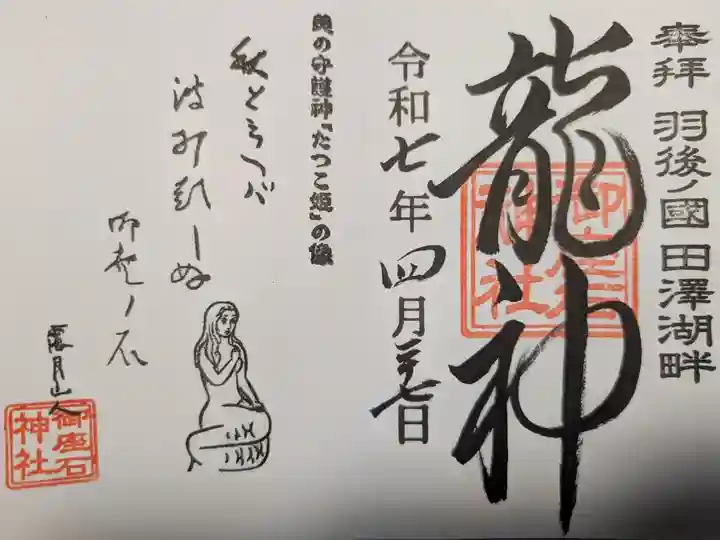 奉拝 羽後ノ國 田澤湖畔
龍神
御座石
神社
令和七年四月二十七日
美の守護神「たつこ姫」の像
秋とらへバ
御座ノ石
露月山人
御座石
神社